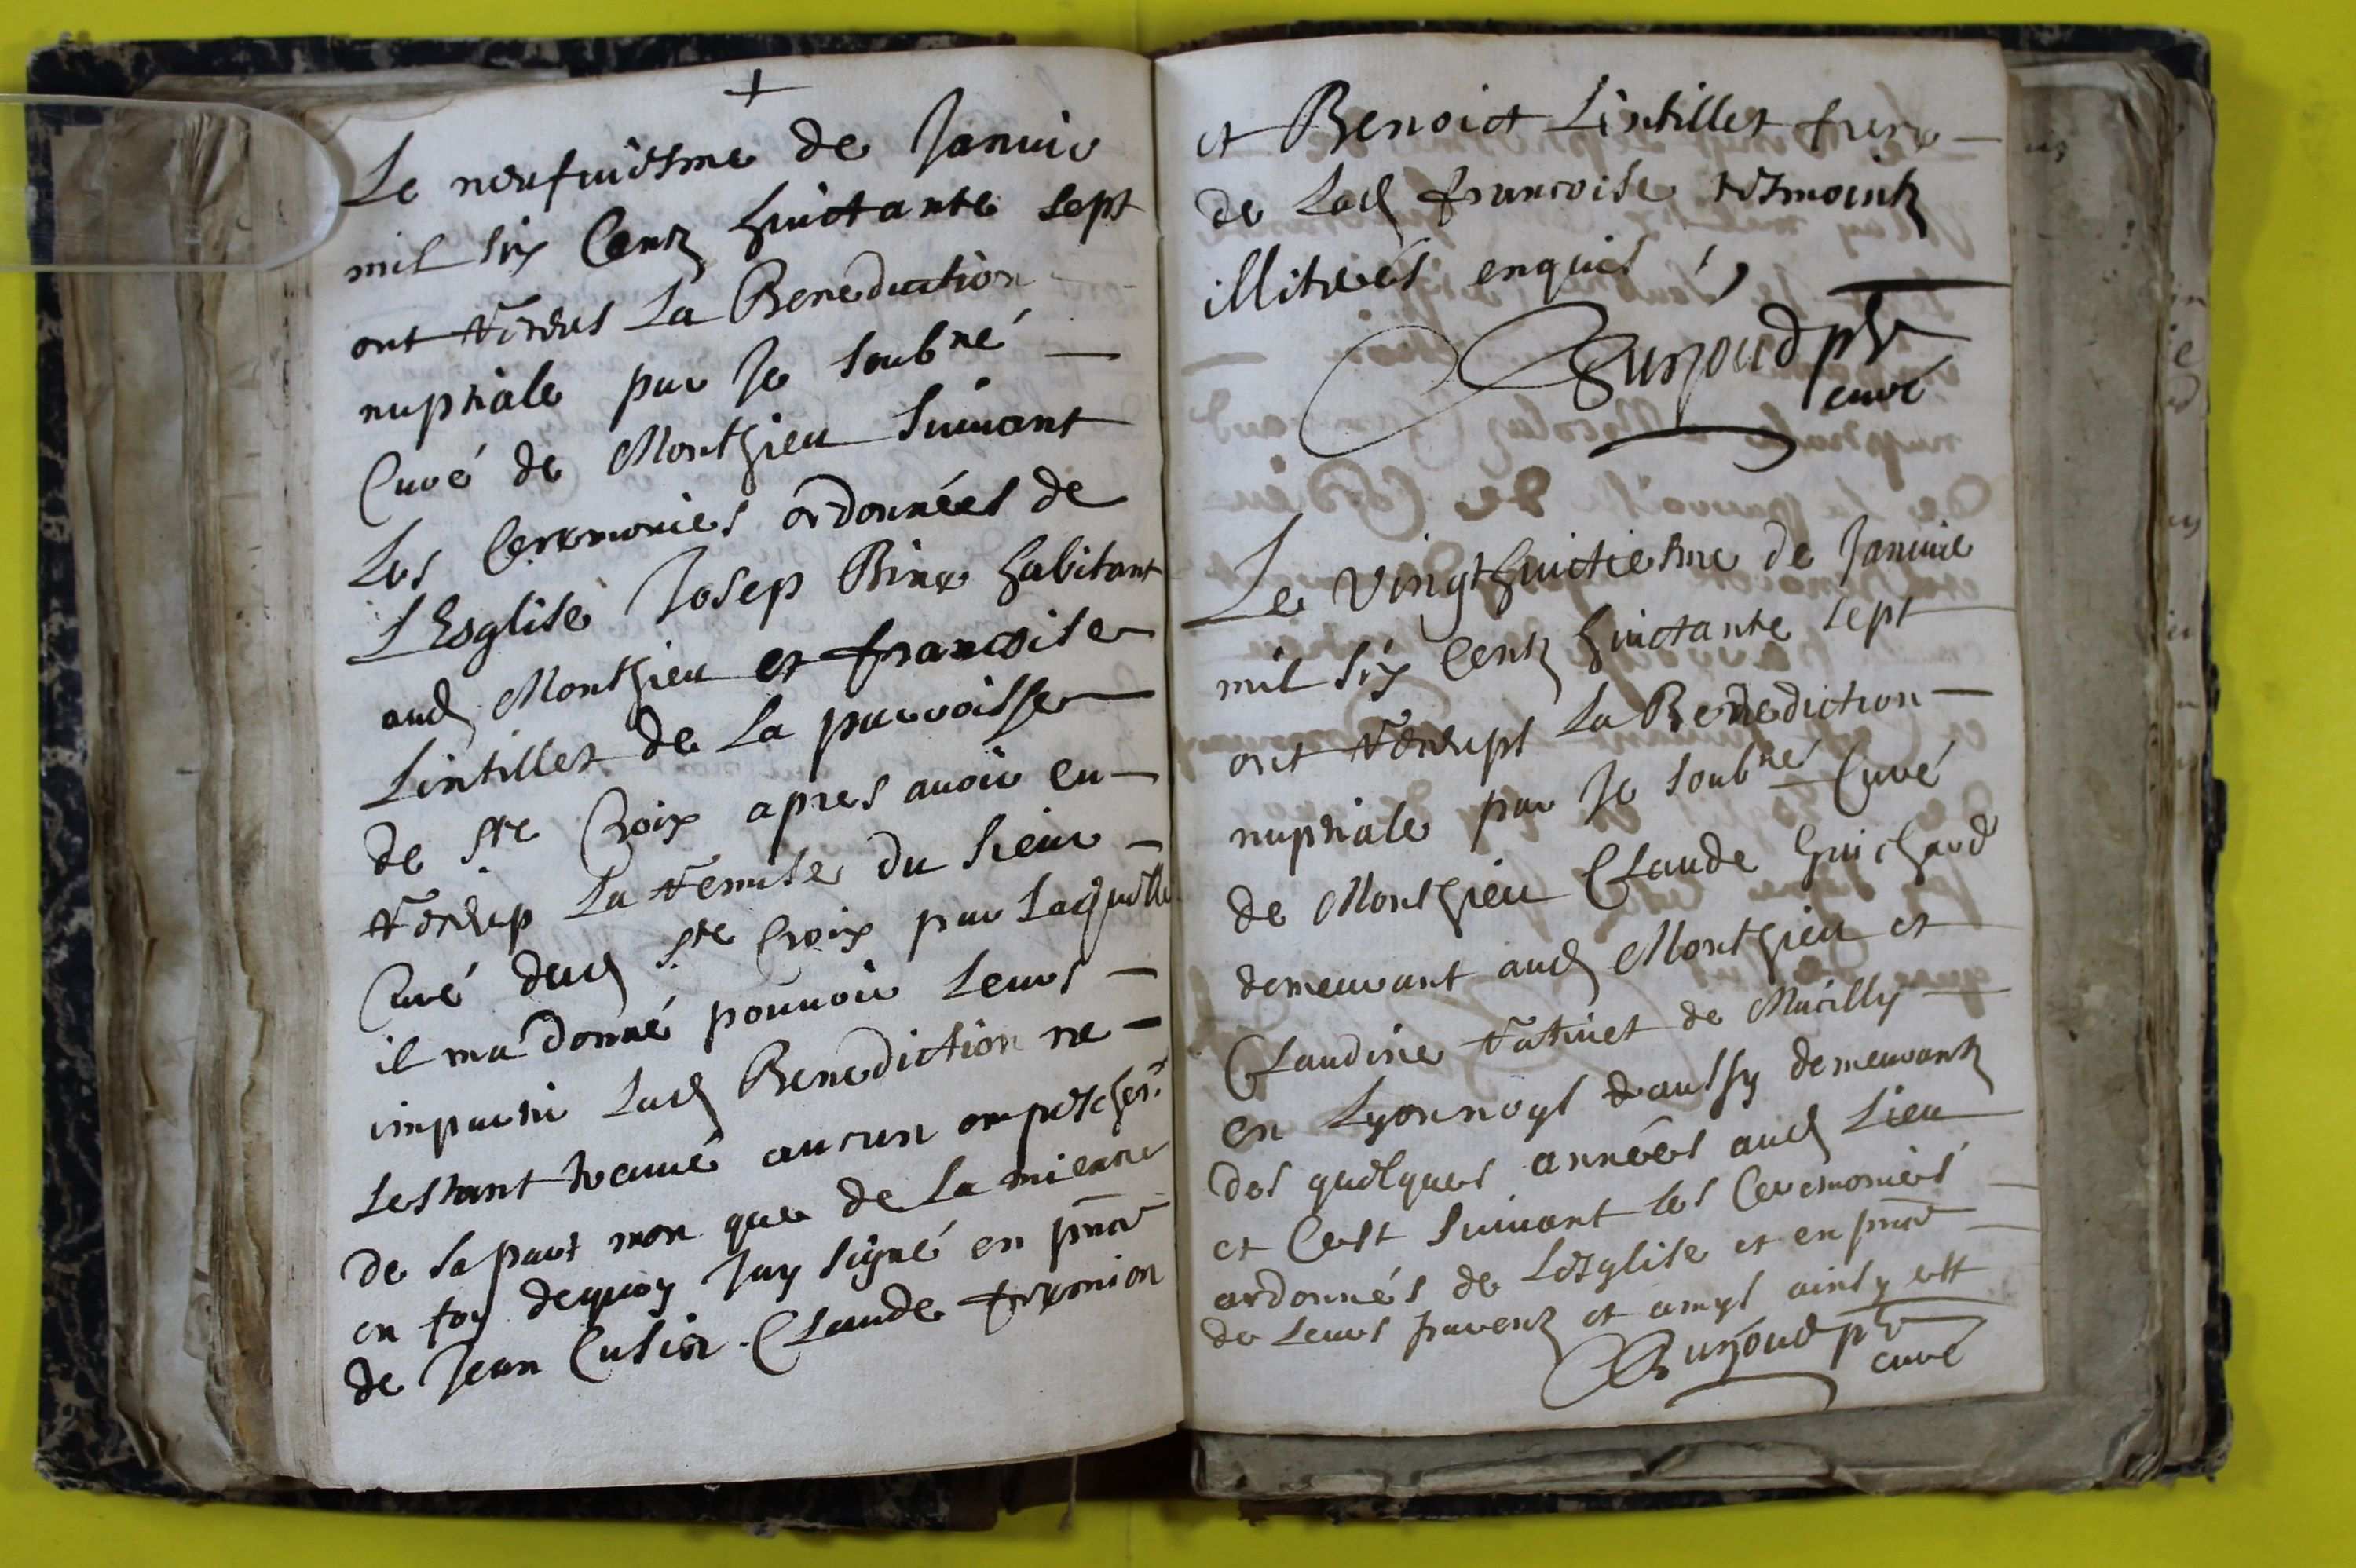 Le neufuiesme de Januie
mil six Centz huictante sept
ont Receus La Benediction
nuptiale par Je Soub.né
Curé de Monthieu Suiuant
Les Ceremonies ordonnées de
L'Esglise Josep Bine habitant
aud Monthieu et francoise
Lintillet de La parroisse
de Ste Croix apres auoir eu
Receup La Remise du Sieur
Curé dud Ste Croix par Laquelle
il ma donné pouuoir Leurs
impartir Lad Benediction ne
sestant treuué aucun empeschent
de sa part non que de La mienne
en foy dequoy Jay signé en pnce
de Jean Cusin Claude fremion
et Benoict Lintillet frere
de Lad francoise tesmointz
illiterés enquis
Burjoud ptr
curé
Le vingthuictiesme de Januie
mil six Centz huictante sept
ont Receupt La Benediction
nuptiale par Je soubné Curé
de Monthieu Claude Guichard
demeurant aud Monthieu et
Claudine Ratinet de Marcilly
en Lyonnoys & aussy demeurantz
des quelques années aud Lieu
et Cest Suiuant les Ceremonies
ordonnés de Lesglise et en pnce
de Leurs parentz et amys ainsy est
Burjoud ptr
curé